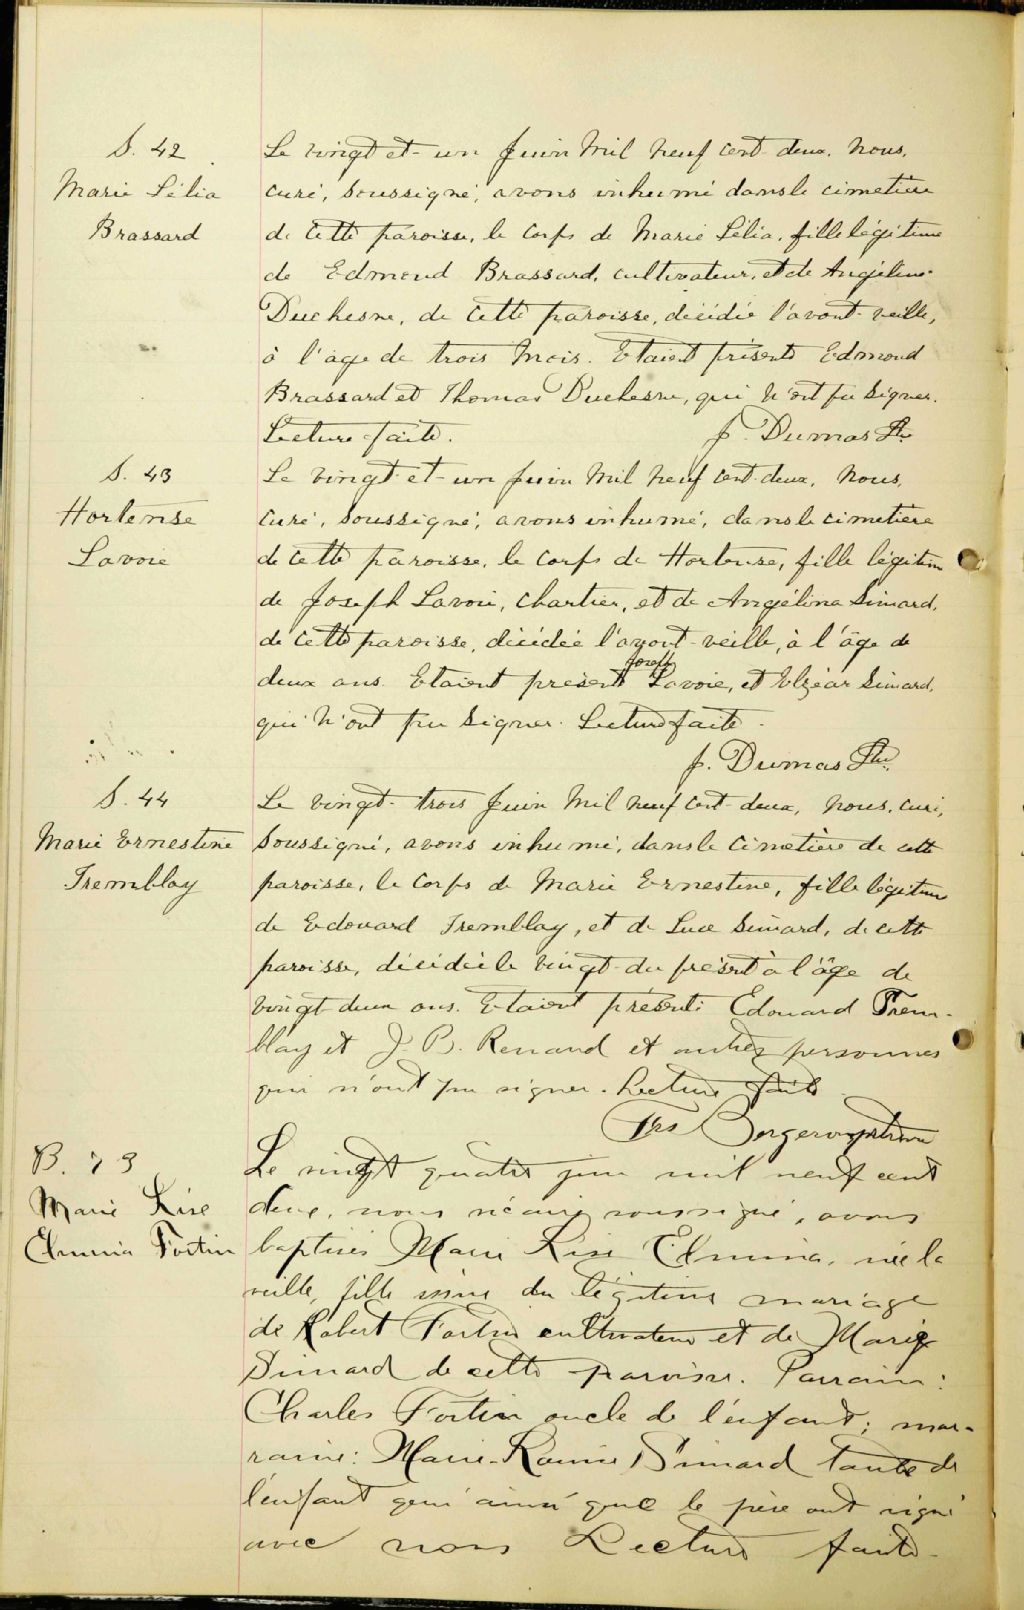 S. 42
Marie Lélia
Brassard
Le vingt et-un Juin Mil neuf cent-deux, nous,
curé, soussigné, avons inhumé dans le cimetière
de cette paroisse, le corps de Marie Lélia, fille légitime
de Edmond Brassard, cultivateur, et de Angéline
Duchesne, de cette paroisse, décédée l'avant-veille,
à l'age de trois mois. Etaient présents Edmond
Brassard et Thomas Duchesne, qui n'ont pu signer.
Lecture faite.
J. Dumas Ptre
S. 43
Hortense
Lavoie
Le vingt-et-un Juin Mil neuf cent-deux, nous,
curé, soussigné, avons inhumé, dans le cimetière
de cette paroisse, le corps de Hortense, fille légitime
de Joseph Lavoie, charetier, et de Angélina Simard,
de cette paroisse, décédée l'avant-veille, à l'âge de
deux ans. Etaient présents Joseph Lavoie, et Elzéar Simard,
qui n'ont pu signer. Lecture faite.
J. Dumas Ptre.
S. 44
Marie Ernestine
Tremblay
Le vingt-trois Juin Mil neuf cent-deux, nous, curé,
soussigné, avons inhumé, dans le cimetière de cette
paroisse, le corps de Marie Ernestine, fille légitime
de Edouard Tremblay, et de Luce Simard, de cette
paroisse, décédée le vingt-du présent à l'âge de
vingt-deux ans. Etaient présents Edouard Trem-
blay et J. B. Renaud et autres personnes
qui n'ont pu signer. Lecture faite.
Frs Bergeron ptre
B. 73
Marie Lise
Elmina Fortin
Le vingt quatre juin mil neuf cent
deux, nous vicaire soussigné, avons
baptisé Marie Lise Elmina, née la
veille, fille issue du légitime mariage
de Robert Fortin cultivateur et de Marie
Simard de cette paroisse. Parrain:
Charles Fortin oncle de l'enfant; mar-
raine: Marie-Louise Simard tante de
l'enfant qui ainsi que le père ont signé
avec nous Lecture faite.